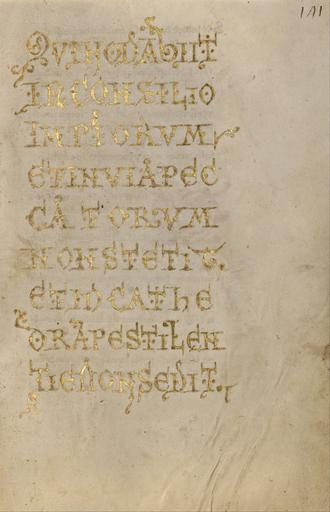 141
QUI NON ABIIT
IN CONSILIO
IMPIORUM
ET IN VIA PEC
CATORUM
NON STETIT.
ET IN CATHE
DRA PESTILEN
TIE NON SEDIT.